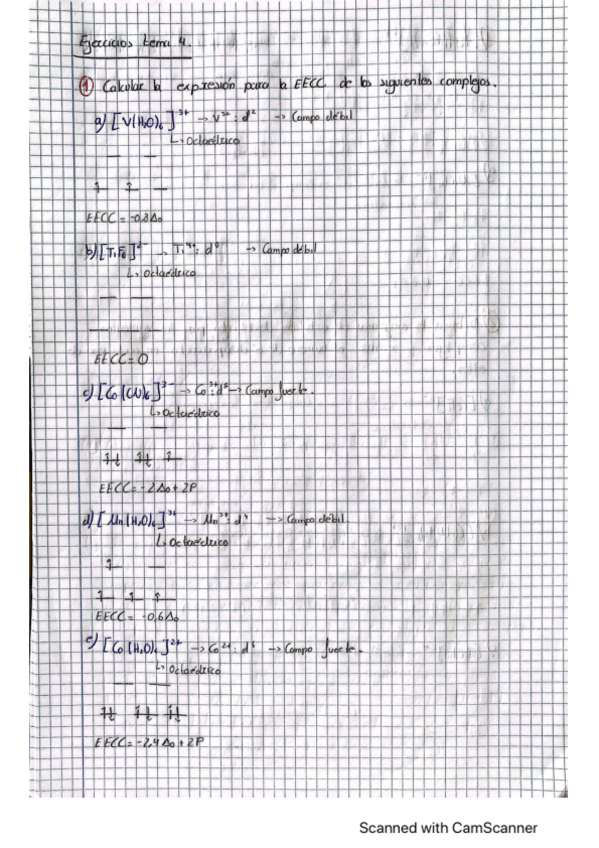 Ejercicios tema 4.
① Calcular la expresión para la EECC de los siguientes complejos.
a) [V(H₂O)₆]³⁺ → V³⁺: d² → Campo débil
↳ Octaédrico
EECC = -0,8Δo
b) [TiF₆]²⁻ → Ti⁴⁺: d⁰ → Campo débil
↳ Octaédrico
EECC = 0
c) [Co(CN)₆]³⁻ → Campo fuerte.
↳ Octaédrico
EECC = -2Δo + 2P
d) [Mn(H₂O)₆]³⁺ → Mn³⁺: d⁴ → Campo débil.
↳ Octaédrico
EECC = -0,6Δo
e) [Co(H₂O)₆]²⁺ → Co²⁺: → Campo fuerte.
↳ Octaédrico
EECC = -2,4Δo + 2P
Scanned with CamScanner